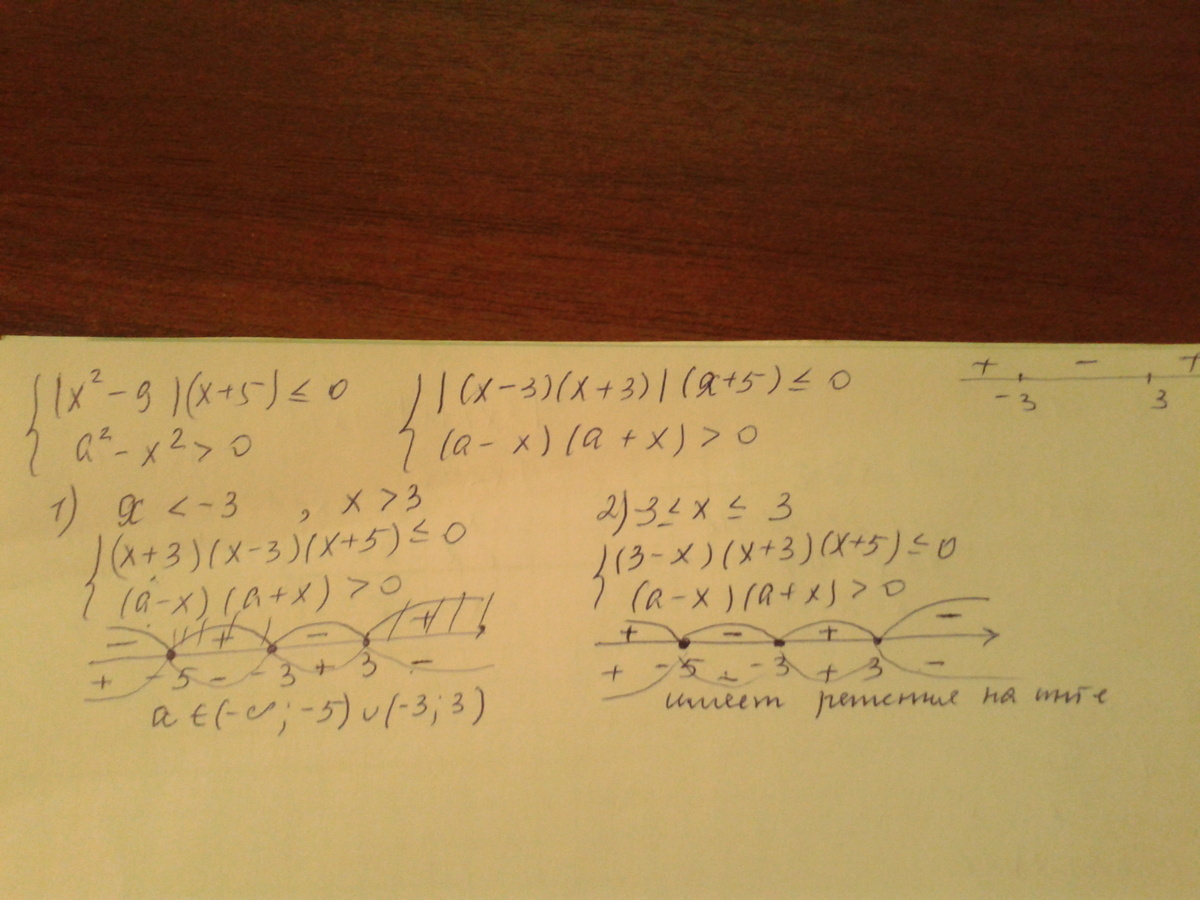 { |x² - 9|(x+5) ≤ 0
a² - x² > 0
{ |(x-3)(x+3)|(x+5) ≤ 0
(a-x)(a+x) > 0
+ - +
-3 3
1) x < -3 , x > 3
{ (x+3)(x-3)(x+5) ≤ 0
(a-x)(a+x) > 0
- + - +
+ -5 - -3 + 3 -
a ∈ (-∞; -5) ∪ (-3; 3)
2) -3 ≤ x ≤ 3
{ (3-x)(x+3)(x+5) ≤ 0
(a-x)(a+x) > 0
+ - + -
+ -5 - -3 + 3 -
имеет решение на инт-е